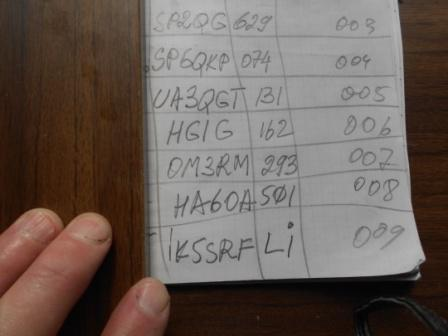 SP2QG 629 003
SP6QKP 074 004
UA3QGT 131 005
HG1G 162 006
OM3RM 293 007
HA6OA 501 008
IK5SRF Li 009